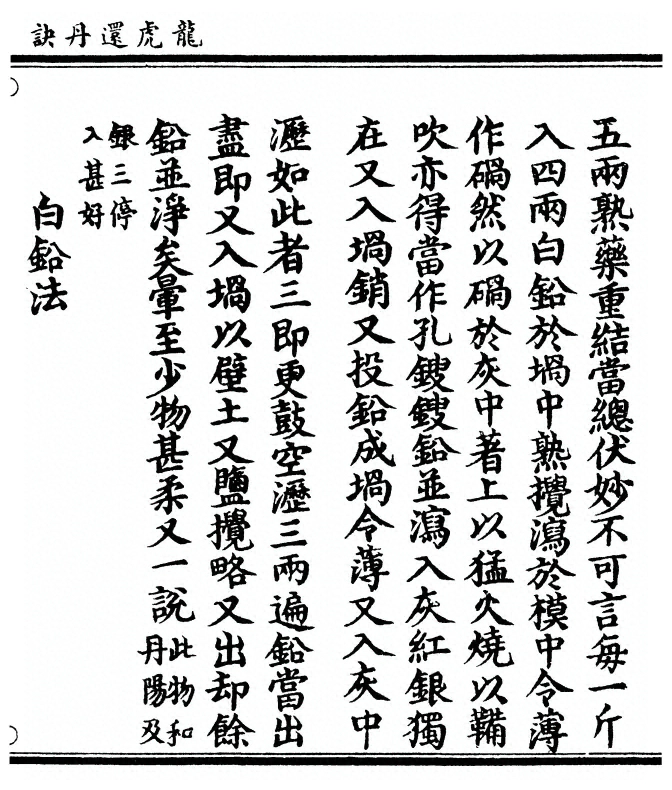 龍虎還丹訣
五兩熟藥重結當總伏妙不可言每一斤
入四兩白鉛於堝中熟攪瀉於模中令薄
作碢然以碢於灰中著上以猛火燒以鞴
吹亦得當作孔鎪鎪鉛並瀉入灰紅銀獨
在又入堝銷又投鉛成堝令薄又入灰中
瀝如此者三即更鼓空瀝三兩遍鉛當出
盡即又入堝以壁土又鹽攪略又出却餘
鉛並淨矣暈至少物甚柔又一說此物和丹陽及
銀三停入甚好
白鉛法